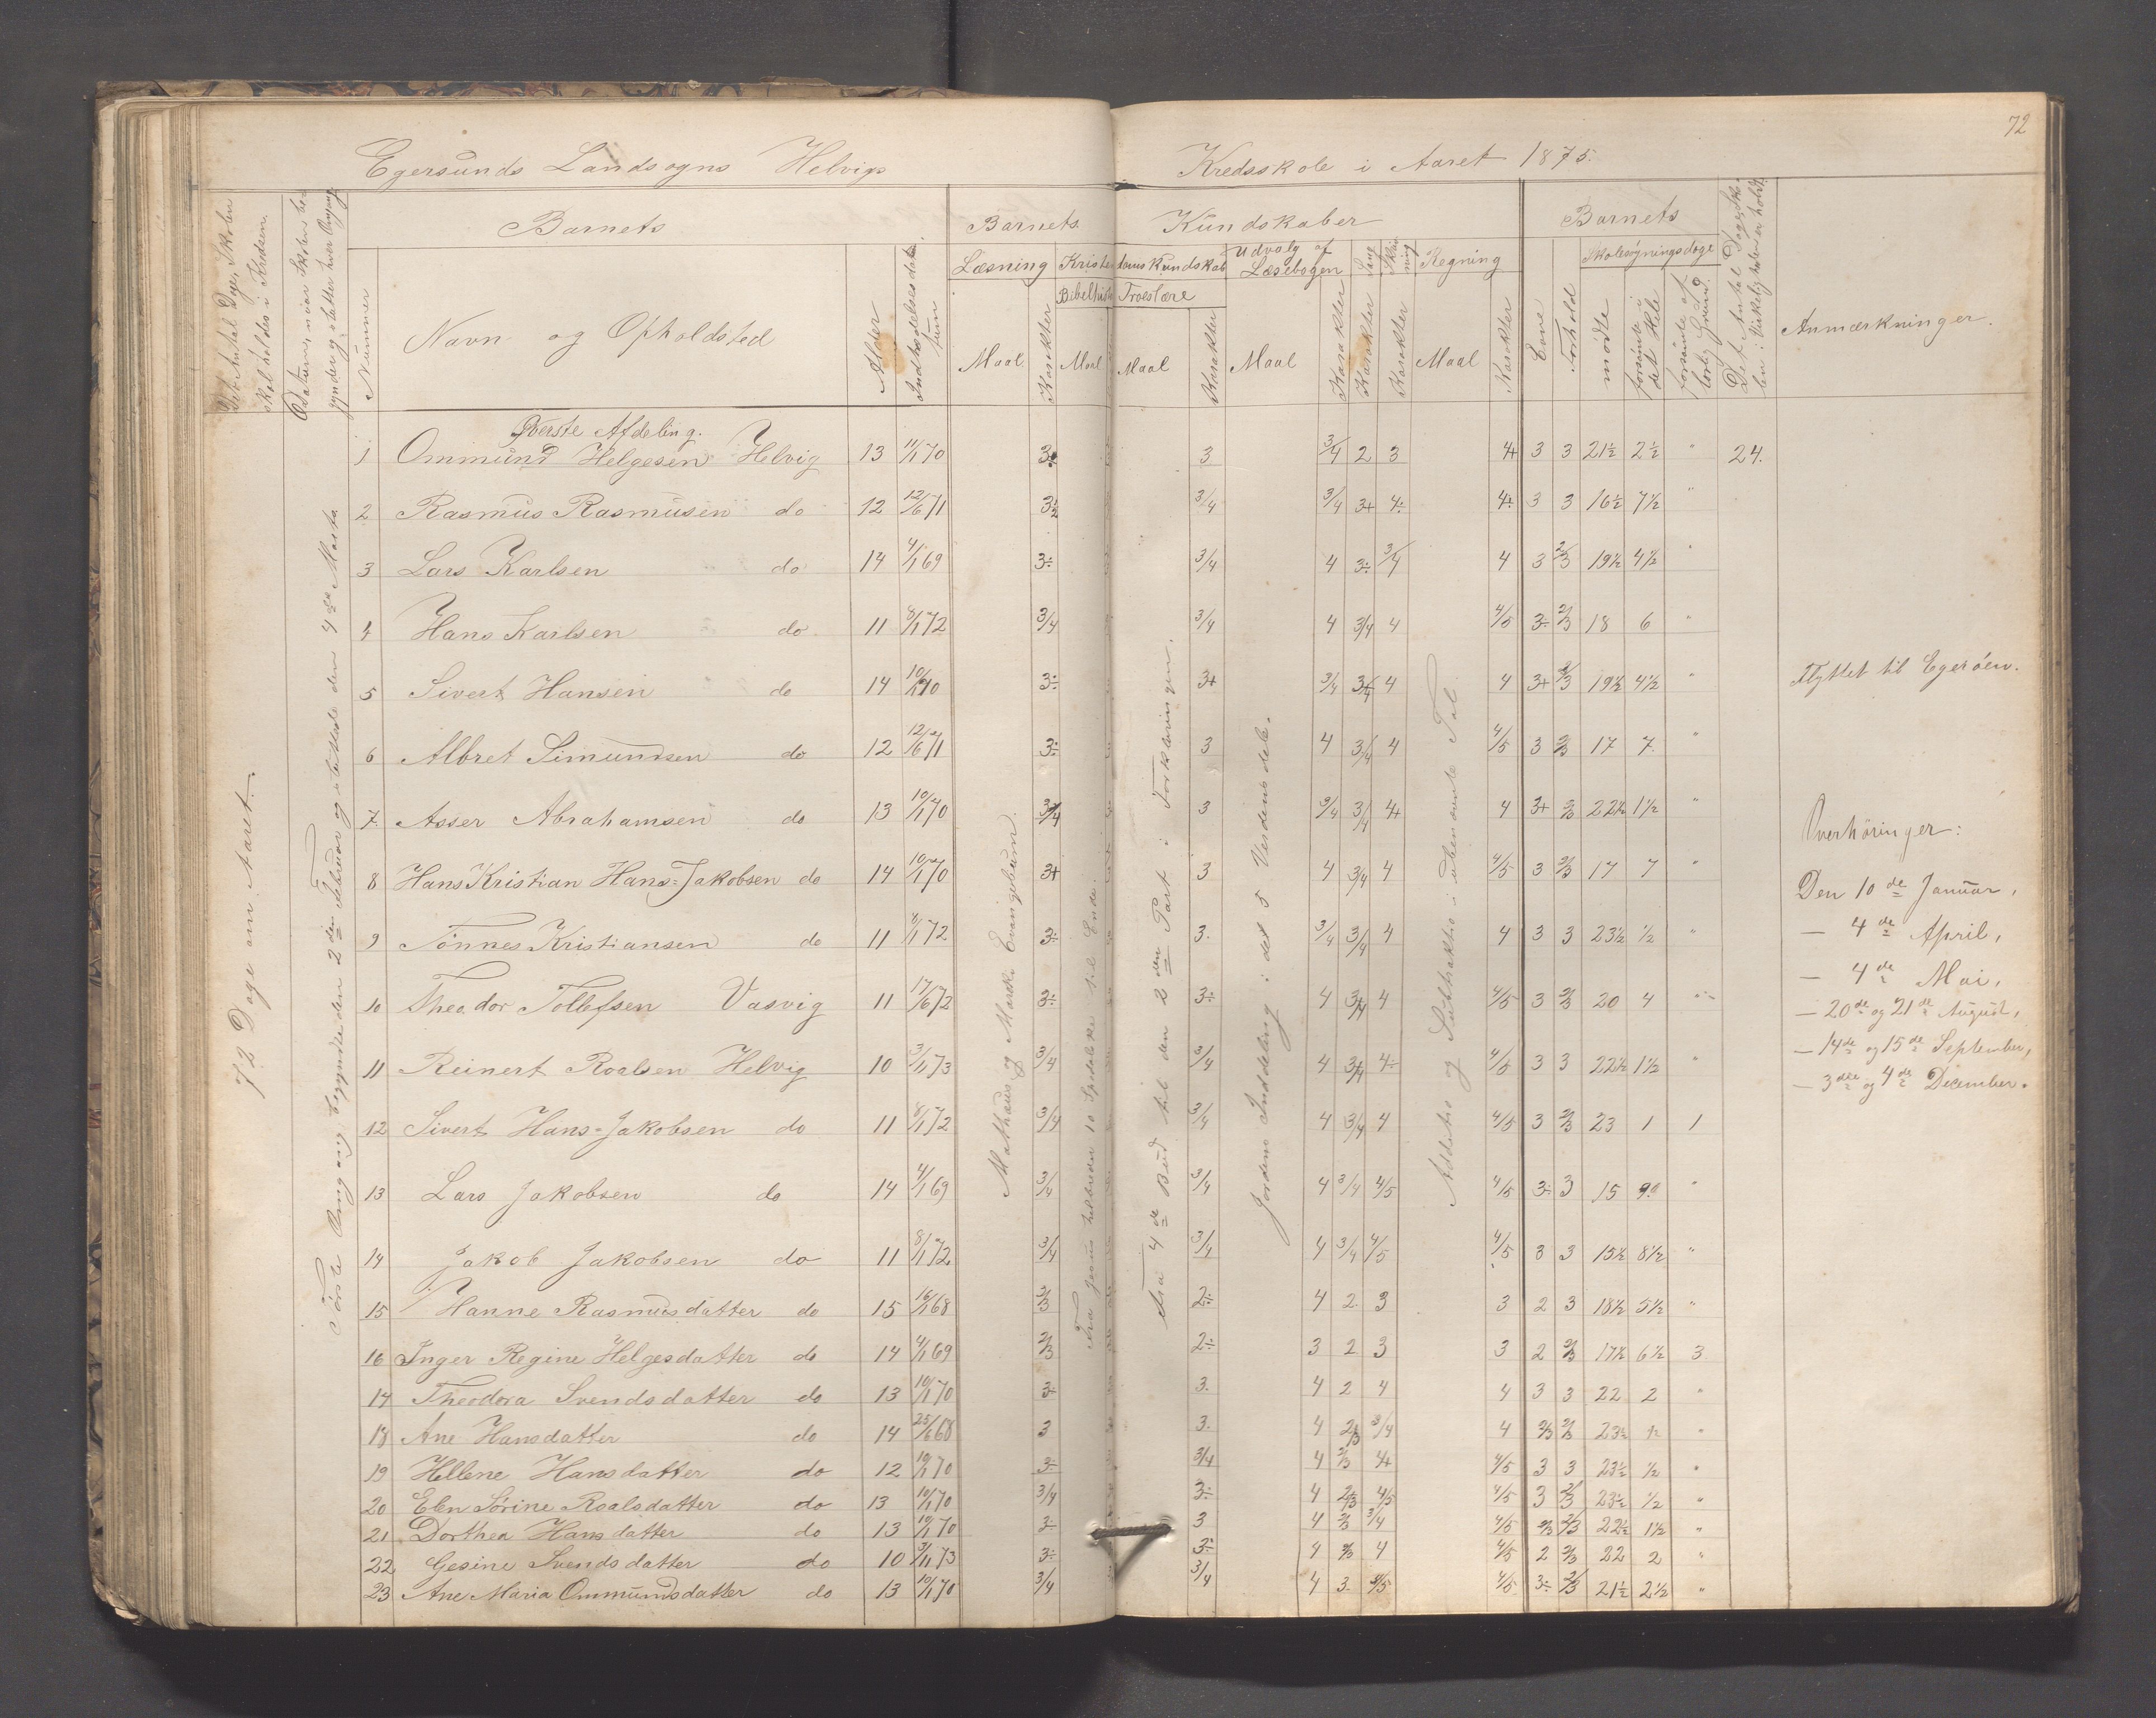 72
Egersunds Landsogns Helvigs Kredsskole i Aaret 1875.
Det Antal Dage, Skolen skal holdes i Kredsen.
Datum, naar Skolen begynder og slutter hver Omgang
Nummer
Barnets
Navn og Opholdsted
Alder
Indtrædelsesdatum
Barnets Kundskaber
Læsning
Kristendomskundskab
Udvalg af Læsebogen
Sang
Skrivning
Regning
Bibelhist
Troeslære
Maal
Karakter
Maal
Maal
Karakter
Maal
Karakter
Karakter
Karakter
Maal
Karakter
Barnets
Evne
Forhold
Skolesøgningsdage
mødte
forsømte i det Hele
forsømte af lovlig Grund.
Det Antal Dage, Skolen i Virkeligheden er holdt.
Anmærkninger.
72 Dage om Aaret.
Første Omgang begyndte den 2den Februar og sluttede den 4de Marts
Mathæus og Marci Evangelium.
Fra Jesus helbreder 10 Spedalske til Ende.
Fra 4de Bud til den 2den Part i Forklaringen.
Jordens Inddeling i det 5 Verdensdele.
Additio og Subtraktio i ubenævnte Tal.
Øverste Afdeling.
1 Ommund Helgesen Helvig 13 11/1 70 3 3 3/4 2 3 4+ 3 3 21½ 2½ " 24.
2 Rasmus Rasmusen do 12 12/6 71 3½ 3/4 3/4 3+ 4÷ 4+ 3 3 16½ 7½ "
3 Lars Karlsen do 14 4/1 69 3÷ 3/4 4 3÷ 3/4 4 3 2/3 19½ 4½ "
4 Hans Karlsen do 11 8/1 72 3/4 3/4 4 3/4 4 4/5 3÷ 2/3 18 6 "
5 Sivert Hansen do 14 10/1 70 3÷ 3+ 3/4 3/4 4 4 3+ 2/3 19½ 4½ " Flyttet til Egerøen.
6 Albret Simundsen do 12 12/6 71 3÷ 3 4 3/4 4 4/5 3 2/3 17 7 "
7 Asser Abrahamsen do 13 10/1 70 3/4 3 3/4 3/4 4+ 4 3+ 2/3 22½ 1½ "
8 Hans Kristian Hans-Jakobsen do 14 10/1 70 3+ 3 4 3/4 4 4/5 3 2/3 17 7 "
9 Tønnes Kristiansen do 11 8/1 72 3÷ 3. 3/4 3/4 4 4 3 3 23½ ½ "
10 Theodor Tollefsen Vasvig 11 17/6 72 3÷ 3÷ 4 3/4 4 4/5 3 2/3 20 4 "
11 Reinert Roalsen Helvig 10 3/11 73 3/4 3/4 4 3/4 4÷ 4/5 3 3 22½ 1½ "
12 Sivert Hans-Jakobsen do 11 8/1 72 3/4 3/4 4 3/4 4 4/5 3 2/3 23 1 1
13 Lars Jakobsen do 14 4/1 69 3/4 3/4 4 3/4 4/5 4/5 3÷ 3 15 9 "
14 Jakob Jakobsen do 11 8/1 72 3/4 3/4 4 3/4 4/5 4/5 3 3 15½ 8½ "
15 Hanne Rasmusdatter do 15 16/1 68 2/3 2÷ 4 2 3 3 2 3 18½ 5½ "
16 Inger Regine Helgesdatter do 14 4/1 69 2/3 2÷ 3 2 3 3 2 2/3 17½ 6½ 3
17 Theodora Svendsdatter do 13 10/1 70 3+ 3. 4 2 4 4 3 3 22 2 "
18 Ane Hansdatter do 14 25/6 68 3 3. 4 2/3 3/4 4 2/3 2/3 23½ ½ "
19 Hellene Hansdatter do 12 10/1 70 3÷ 3/4 4 2/3 4+ 4/5 3 3 23½ ½ "
20 Elen Sørine Roalsdatter do 13 10/1 70 3/4 3÷ 4 2/3 4/5 4/5 3 2/3 23½ ½ "
21 Dorthea Hansdatter do 13 10/1 70 3÷ 3 4 2/3 3/4 4/5 2/3 2/3 22½ 1½ "
22 Gesine Svendsdatter do 10 3/11 73 3÷ 3÷ 4 2/3 4 4/5 2 2/3 22 2 "
23 Ane Maria Ommundsdatter do 13 10/1 70 3/4 3/4 4 3 4/5 3÷ 2/3 21½ 2½ "
Overhøringer:
Den 10de Januar,
— 4de April,
— 4de Mai,
— 20de og 21de August,
— 14de og 15de September,
— 3die og 4de December.